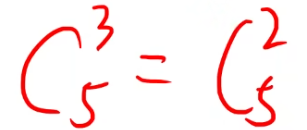 C₅³ = C₅²